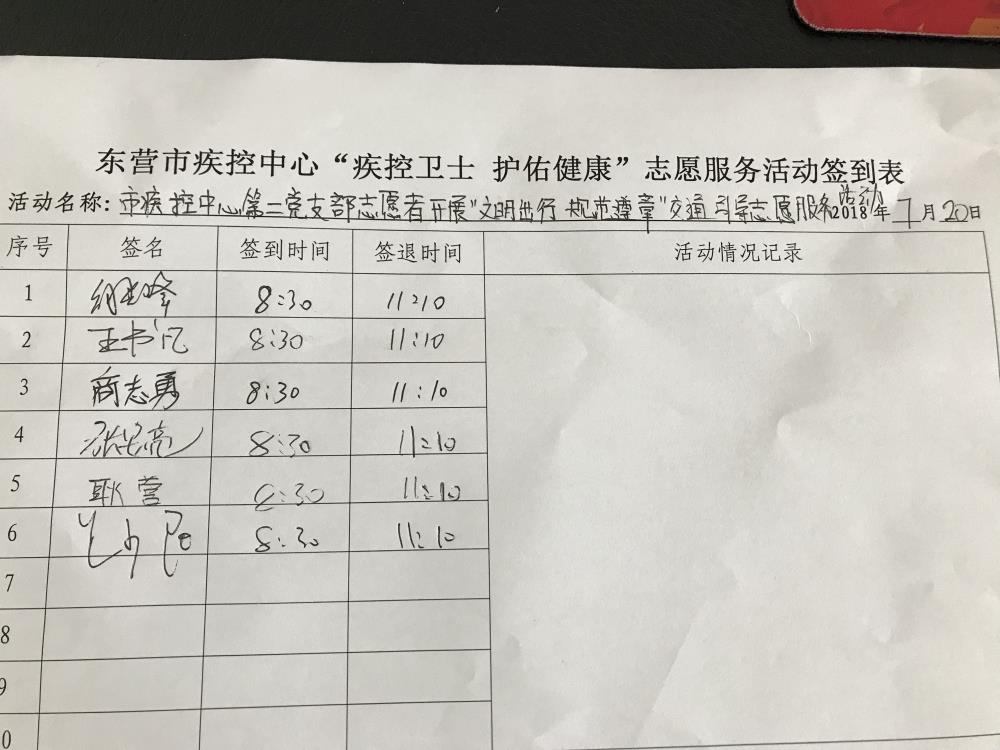 东营市疾控中心“疾控卫士 护佑健康”志愿服务活动签到表
活动名称：市疾控中心第二党支部志愿者开展“文明出行 规范遵章”交通引导志愿服务活动 2018年7月20日
序号 签名 签到时间 签退时间 活动情况记录
1 8:30 11:10
2 王书凡 8:30 11:10
3 商志勇 8:30 11:10
4 8:30 11:10
5 耿营 8:30 11:10
6 8:30 11:10
7
8
9
0